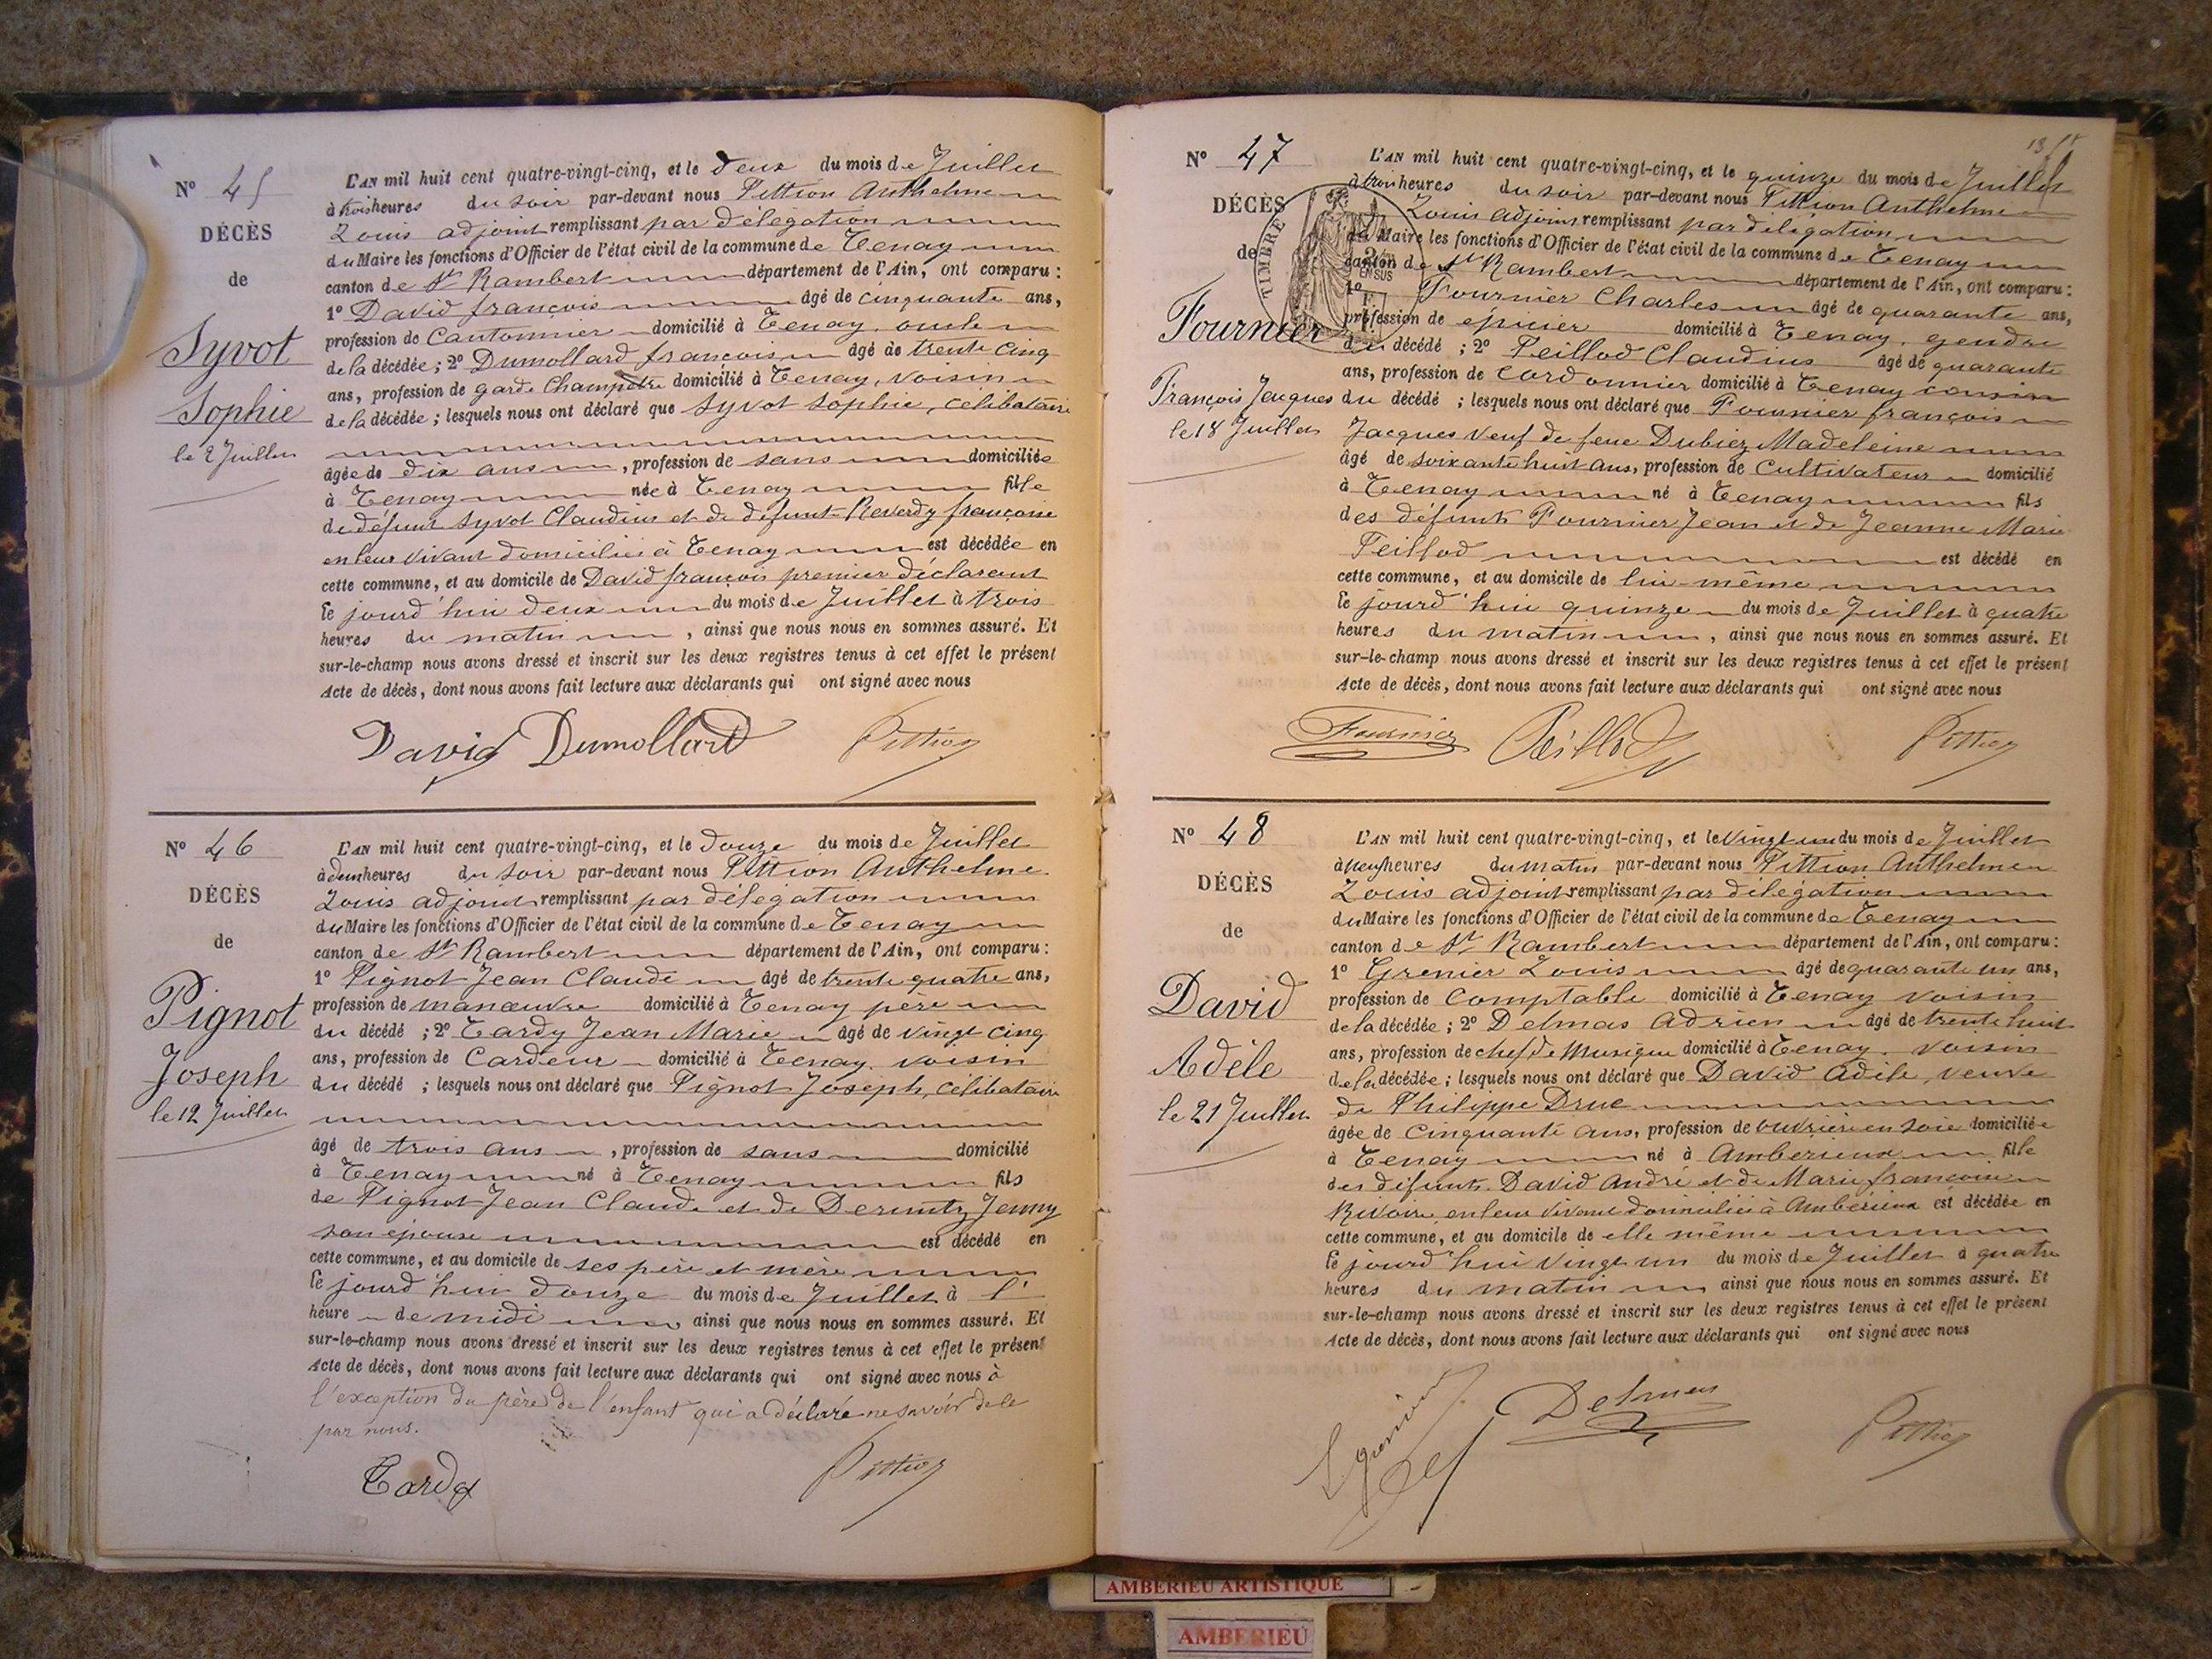 Nº 45
DÉCÈS
de
Syvot
Sophie
le 2 Juillet
L'AN mil huit cent quatre-vingt-cinq, et le deux du mois de Juillet
à trois heures du soir par-devant nous Pittion Anthelme
Louis adjoint remplissant par délégation
du Maire les fonctions d'Officier de l'état civil de la commune de Tenay
canton de St Rambert département de l'Ain, ont comparu :
1º David françois âgé de cinquante ans,
profession de Cantonnier domicilié à Tenay, oncle
de la décédée ; 2º Dumollard françois âgé de trente cinq
ans, profession de garde Champêtre domicilié à Tenay, voisin
de la décédée ; lesquels nous ont déclaré que Syvot Sophie, célibataire
âgée de dix ans , profession de sans domiciliée
à Tenay née à Tenay fille
de défunt Syvot Claudius et de défunte Reverdy françoise
en leur vivant domiciliés à Tenay est décédée en
cette commune, et au domicile de David françois premier déclarant
le jourd'hui deux du mois de Juillet à trois
heures du matin , ainsi que nous nous en sommes assuré. Et
sur-le-champ nous avons dressé et inscrit sur les deux registres tenus à cet effet le présent
Acte de décès, dont nous avons fait lecture aux déclarants qui ont signé avec nous
David Dumollard Pittion
Nº 46
DÉCÈS
de
Pignot
Joseph
le 12 Juillet
L'AN mil huit cent quatre-vingt-cinq, et le douze du mois de Juillet
à deux heures du soir par-devant nous Pittion Anthelme
Louis adjoint remplissant par délégation
du Maire les fonctions d'Officier de l'état civil de la commune de Tenay
canton de St Rambert département de l'Ain, ont comparu :
1º Pignot Jean Claude âgé de trente quatre ans,
profession de manœuvre domicilié à Tenay père
du décédé ; 2º Tardy Jean Marie âgé de vingt cinq
ans, profession de Cardeur domicilié à Tenay, voisin
du décédé ; lesquels nous ont déclaré que Pignot Joseph, célibataire
âgé de trois ans , profession de sans domicilié
à Tenay né à Tenay fils
de Pignot Jean Claude et de Jenny
son épouse est décédé en
cette commune, et au domicile de ses père et mère
le jourd'hui douze du mois de Juillet à l'
heure de midi ainsi que nous nous en sommes assuré. Et
sur-le-champ nous avons dressé et inscrit sur les deux registres tenus à cet effet le présent
Acte de décès, dont nous avons fait lecture aux déclarants qui ont signé avec nous à
l'exception du père de l'enfant qui a déclaré ne savoir de le
par nous.
Tardy Pittion
13
Nº 47
DÉCÈS
de
TIMBRE
EN SUS
Fournier
François Jacques
le 18 Juillet
L'AN mil huit cent quatre-vingt-cinq, et le quinze du mois de Juillet
à trois heures du soir par-devant nous Pittion Anthelme
Louis adjoint remplissant par délégation
du Maire les fonctions d'Officier de l'état civil de la commune de Tenay
canton de St Rambert département de l'Ain, ont comparu :
1º Fournier Charles âgé de quarante ans,
profession de épicier domicilié à Tenay, gendre
du décédé ; 2º Peillod Claudius âgé de quarante
ans, profession de cordonnier domicilié à Tenay cousin
du décédé ; lesquels nous ont déclaré que Fournier françois
Jacques veuf de feue Dubiez Madeleine
âgé de soixante huit ans, profession de Cultivateur domicilié
à Tenay né à Tenay fils
des défunts Fournier Jean et de Jeanne Marie
Peillod est décédé en
cette commune, et au domicile de lui-même
le jourd'hui quinze du mois de Juillet à quatre
heures du matin , ainsi que nous nous en sommes assuré. Et
sur-le-champ nous avons dressé et inscrit sur les deux registres tenus à cet effet le présent
Acte de décès, dont nous avons fait lecture aux déclarants qui ont signé avec nous
Fournier Peillod Pittion
Nº 48
DÉCÈS
de
David
Adèle
le 21 Juillet
L'AN mil huit cent quatre-vingt-cinq, et le vingt un du mois de Juillet
à neuf heures du matin par-devant nous Pittion Anthelme
Louis adjoint remplissant par délégation
du Maire les fonctions d'Officier de l'état civil de la commune de Tenay
canton de St Rambert département de l'Ain, ont comparu :
1º Grenier Louis âgé de quarante un ans,
profession de Comptable domicilié à Tenay voisin
de la décédée ; 2º Delmas Adrien âgé de trente huit
ans, profession de chef de Musique domicilié à Tenay. voisin
de la décédée ; lesquels nous ont déclaré que David Adèle, veuve
de Philippe Druc
âgée de Cinquante ans, profession de ouvrière en soie domiciliée
à Tenay né à Ambérieux fille
des défunts David André et de Marie françoise
Rivoire, en leur vivant domiciliés à Ambérieux est décédée en
cette commune, et au domicile de elle même
le jourd'hui vingt un du mois de Juillet à quatre
heures du matin ainsi que nous nous en sommes assuré. Et
sur-le-champ nous avons dressé et inscrit sur les deux registres tenus à cet effet le présent
Acte de décès, dont nous avons fait lecture aux déclarants qui ont signé avec nous
L Grenier Delmas Pittion
AMBERIEU ARTISTIQUE
AMBERIEU